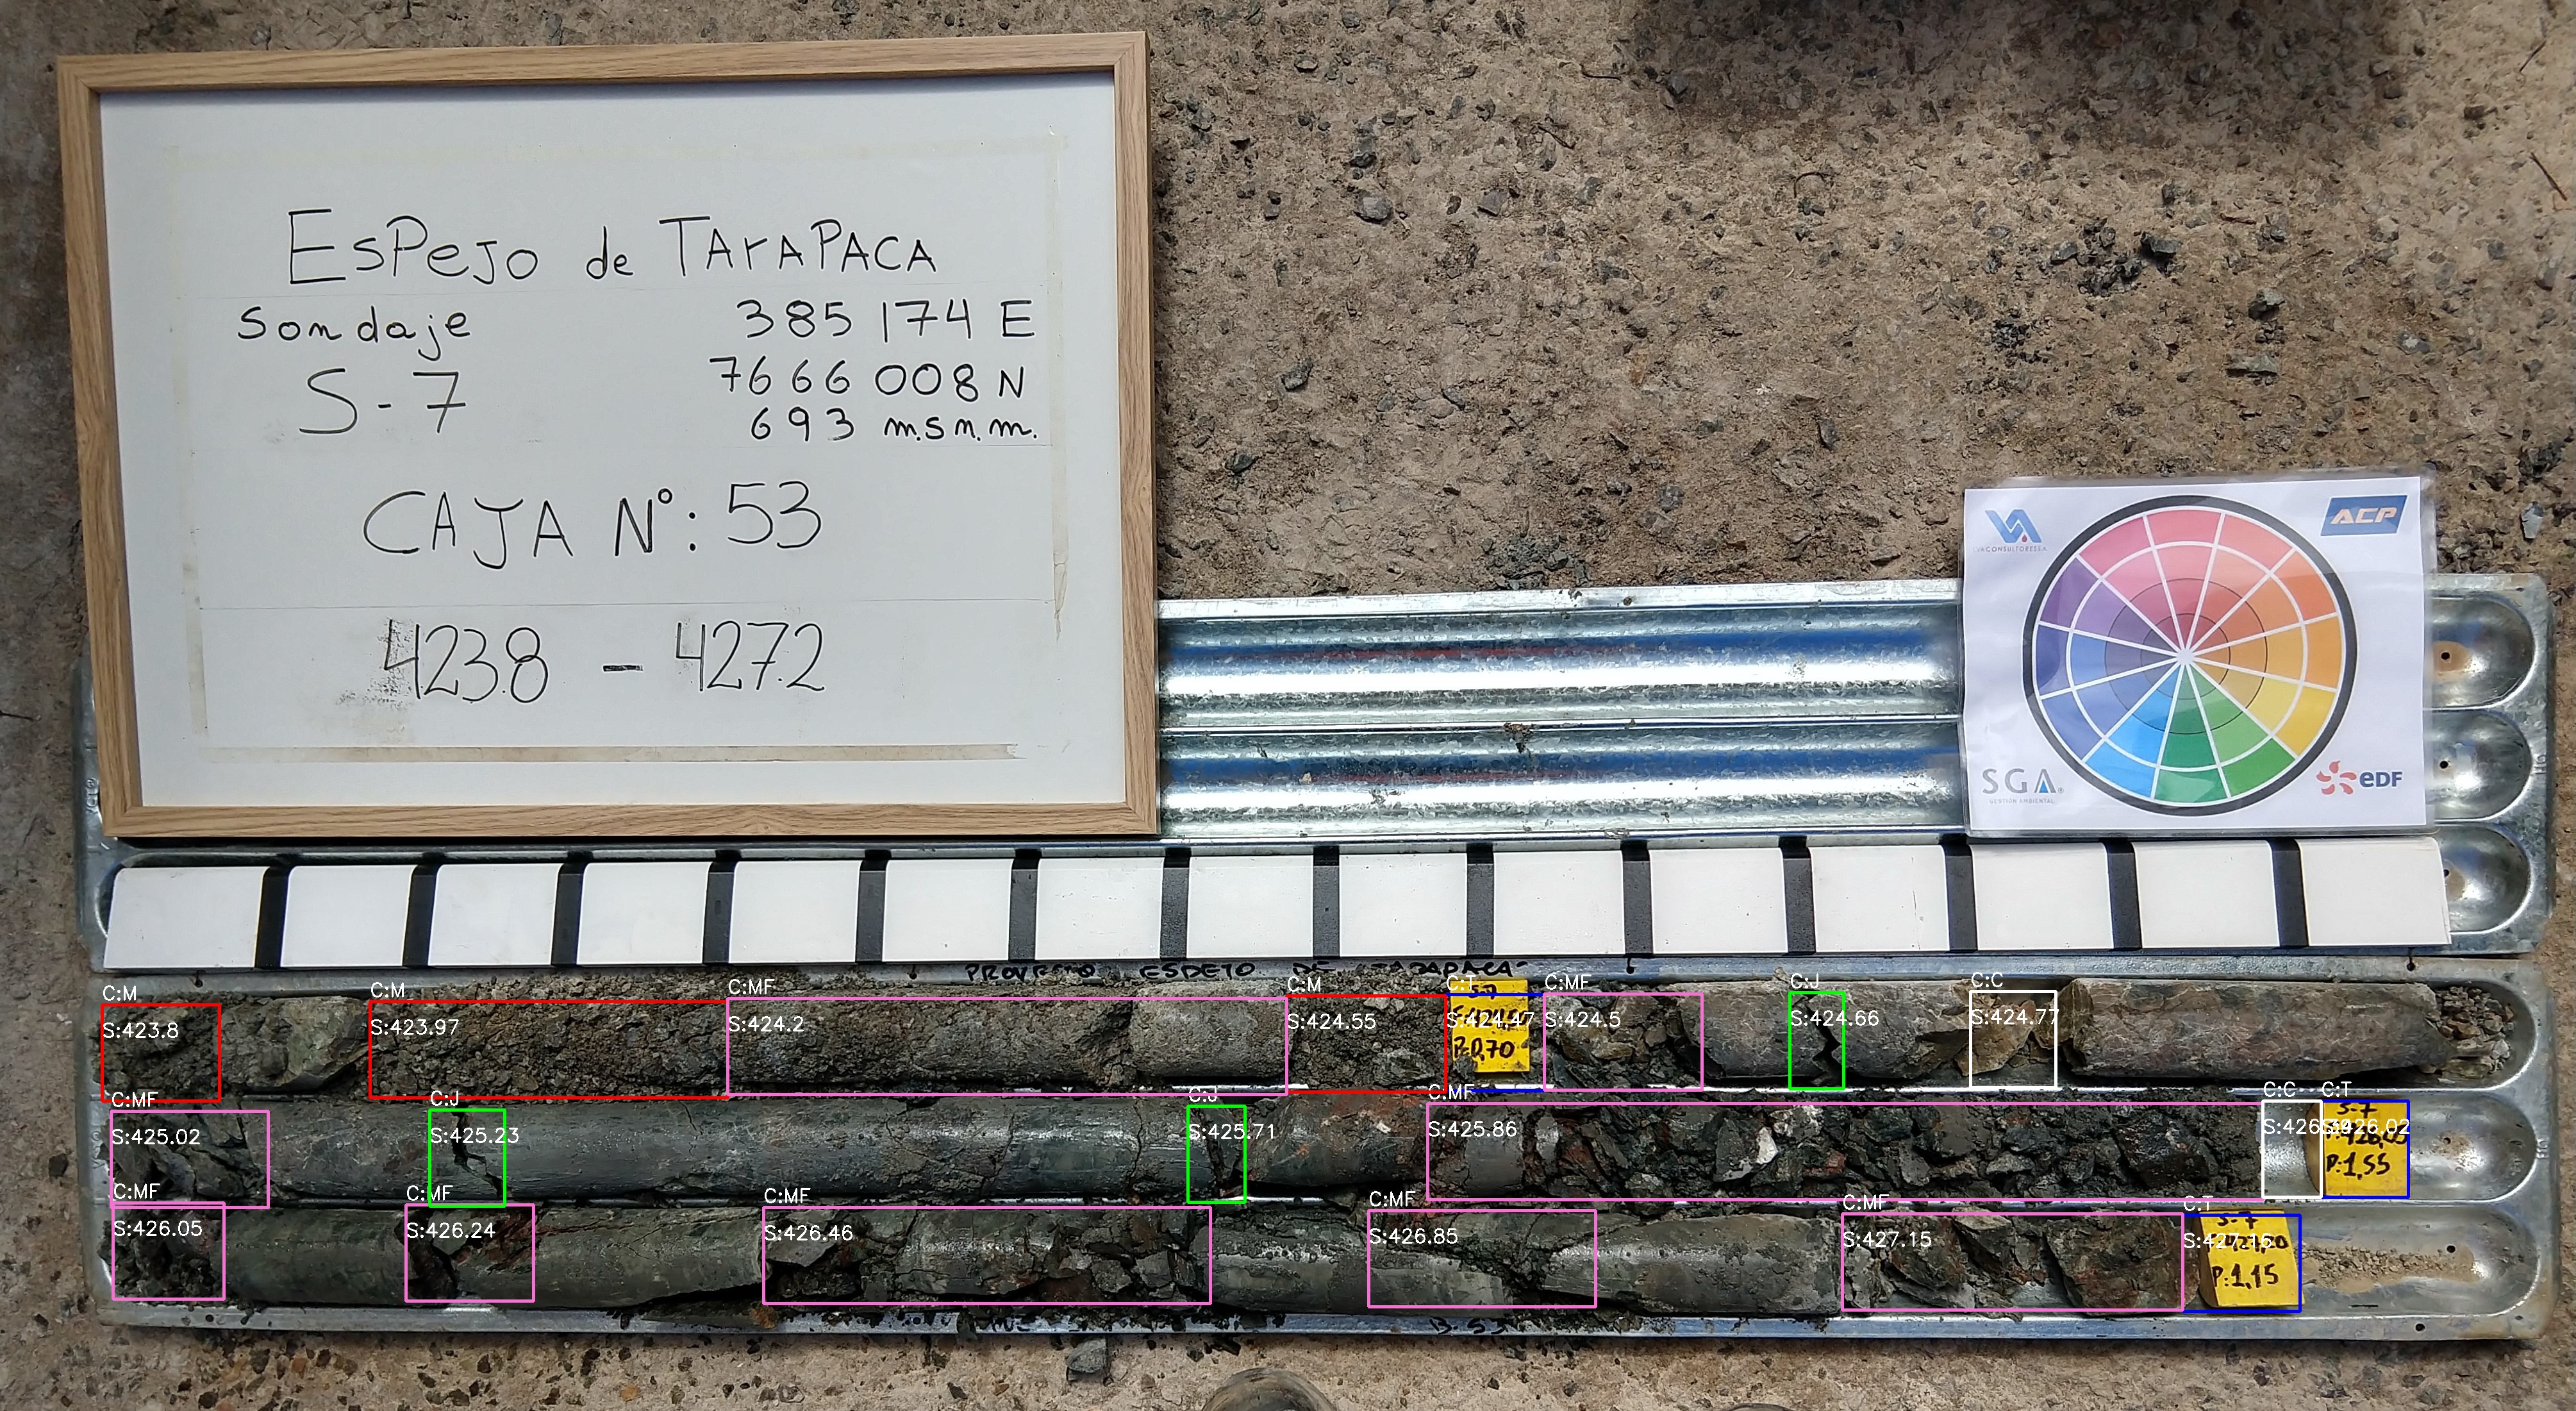 ESPEJO de TARAPACA
Sondaje
385 174 E
S-7
7666 008 N
693 m.s.n.m.
CAJA N°: 53
4238 - 4272
VACONSULTORES S.A.
ACP
SGA
GESTION AMBIENTAL
eDF
PROYECTO ESPEJO DE TARAPACA
C:M
S:423.8
C:M
S:423.97
C:MF
S:424.2
C:M
S:424.55
C:T
S:424.47
S-7
P:0,70
C:MF
S:424.5
C:J
S:424.66
C:C
S:424.77
C:MF
S:425.02
C:J
S:425.23
C:J
S:425.71
C:MF
S:425.86
C:C
C:T
S:426.02
S-7
P:1,55
C:MF
S:426.05
C:MF
S:426.24
C:MF
S:426.46
C:MF
S:426.85
C:MF
S:427.15
C:T
S-7
P:1,15